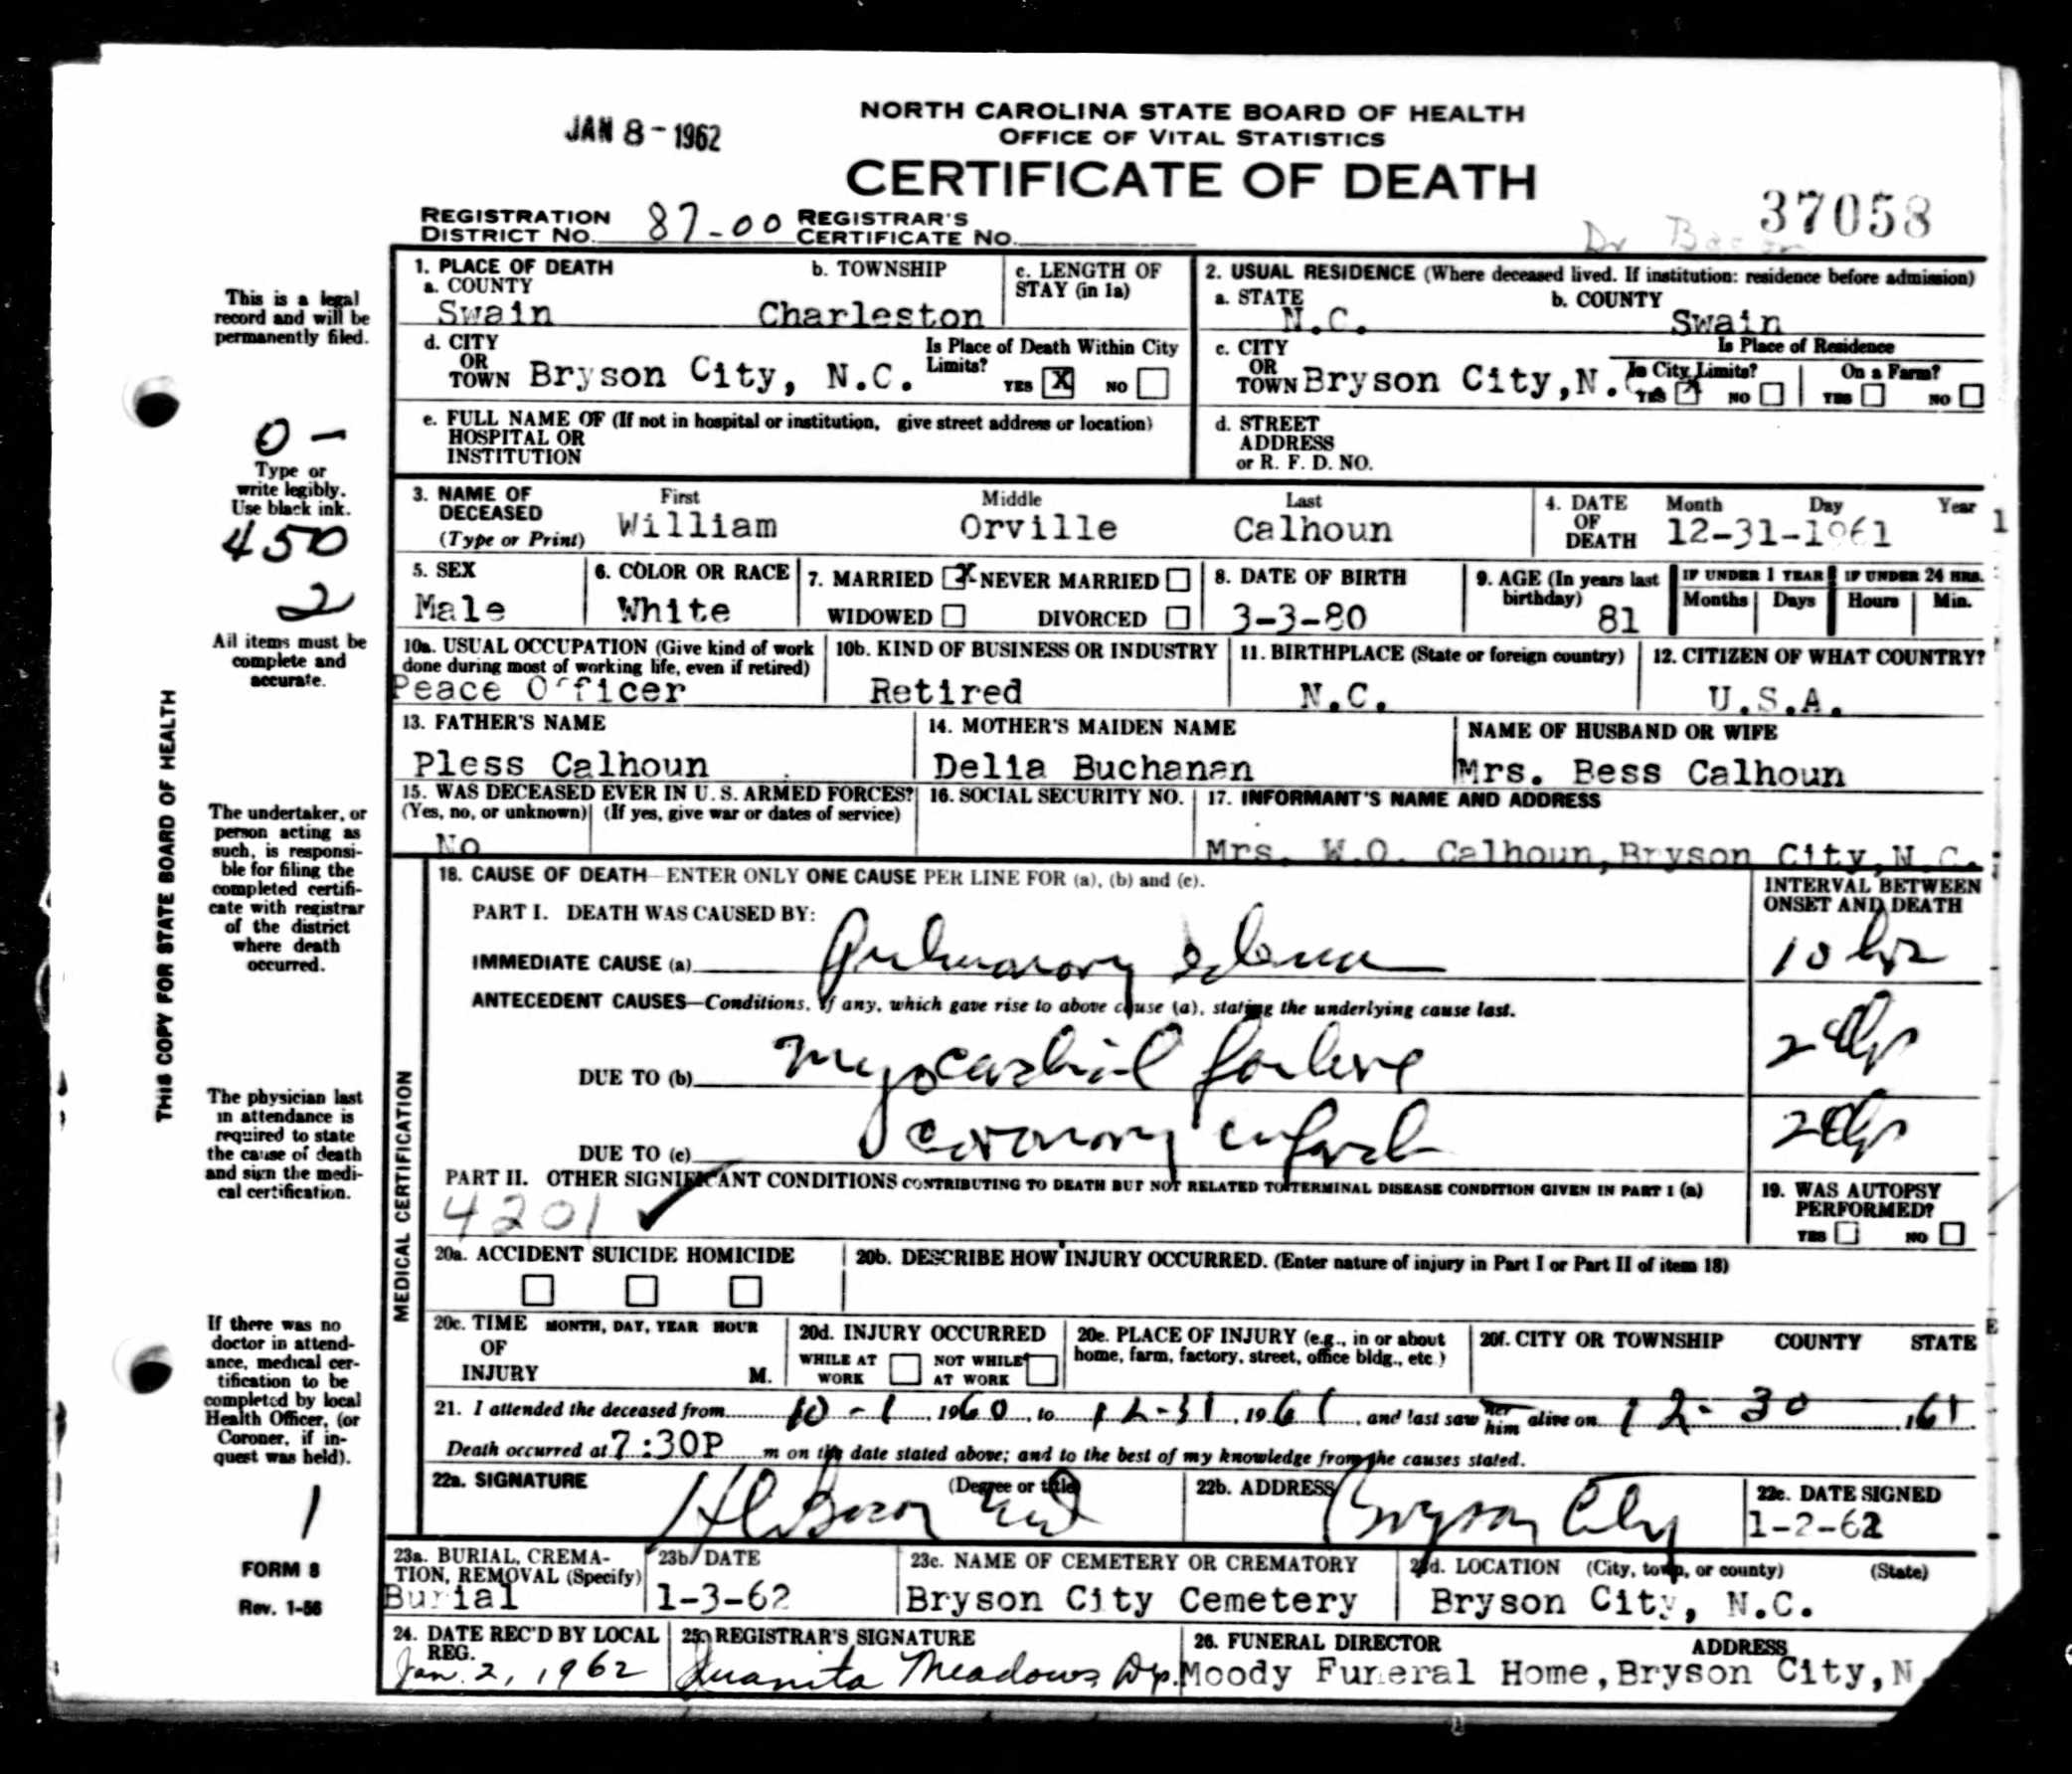 JAN 8 - 1962
NORTH CAROLINA STATE BOARD OF HEALTH
OFFICE OF VITAL STATISTICS
CERTIFICATE OF DEATH
37058
REGISTRATION DISTRICT No. 87-00 REGISTRAR'S CERTIFICATE No.
Dr
This is a legal record and will be permanently filed.
0 -
Type or write legibly. Use black ink.
450
2
All items must be complete and accurate.
THIS COPY FOR STATE BOARD OF HEALTH
The undertaker, or person acting as such, is responsible for filing the completed certificate with registrar of the district where death occurred.
The physician last in attendance is required to state the cause of death and sign the medical certification.
If there was no doctor in attendance, medical certification to be completed by local Health Officer, (or Coroner, if inquest was held).
1
FORM 8
Rev. 1-56
1. PLACE OF DEATH
a. COUNTY Swain
b. TOWNSHIP Charleston
c. LENGTH OF STAY (in 1a)
2. USUAL RESIDENCE (Where deceased lived. If institution: residence before admission)
a. STATE N.C.
b. COUNTY Swain
d. CITY OR TOWN Bryson City, N.C.
Is Place of Death Within City Limits? YES X NO
c. CITY OR TOWN Bryson City, N.C.
Is Place of Residence
In City Limits? YES X NO
On a Farm? YES NO
e. FULL NAME OF (If not in hospital or institution, give street address or location) HOSPITAL OR INSTITUTION
d. STREET ADDRESS or R. F. D. NO.
3. NAME OF DECEASED (Type or Print)
First William
Middle Orville
Last Calhoun
4. DATE OF DEATH Month Day Year 12-31-1961
1
5. SEX Male
6. COLOR OR RACE White
7. MARRIED X NEVER MARRIED
WIDOWED DIVORCED
8. DATE OF BIRTH 3-3-80
9. AGE (In years last birthday) 81
IF UNDER 1 YEAR Months Days
IF UNDER 24 HRS. Hours Min.
10a. USUAL OCCUPATION (Give kind of work done during most of working life, even if retired) Peace Officer
10b. KIND OF BUSINESS OR INDUSTRY Retired
11. BIRTHPLACE (State or foreign country) N.C.
12. CITIZEN OF WHAT COUNTRY? U.S.A.
13. FATHER'S NAME Pless Calhoun
14. MOTHER'S MAIDEN NAME Delia Buchanan
NAME OF HUSBAND OR WIFE Mrs. Bess Calhoun
15. WAS DECEASED EVER IN U. S. ARMED FORCES? (Yes, no, or unknown) (If yes, give war or dates of service) No
16. SOCIAL SECURITY NO.
17. INFORMANT'S NAME AND ADDRESS Mrs. W.O. Calhoun, Bryson City, N.C.
MEDICAL CERTIFICATION
18. CAUSE OF DEATH—ENTER ONLY ONE CAUSE PER LINE FOR (a), (b) and (c).
INTERVAL BETWEEN ONSET AND DEATH
PART I. DEATH WAS CAUSED BY:
IMMEDIATE CAUSE (a) Pulmonary edema 10 hrs
ANTECEDENT CAUSES—Conditions, if any, which gave rise to above cause (a), stating the underlying cause last.
DUE TO (b) Myocardial failure
DUE TO (c) Coronary infarct
PART II. OTHER SIGNIFICANT CONDITIONS CONTRIBUTING TO DEATH BUT NOT RELATED TO TERMINAL DISEASE CONDITION GIVEN IN PART I (a)
4201 ✓
19. WAS AUTOPSY PERFORMED? YES NO
20a. ACCIDENT SUICIDE HOMICIDE
20b. DESCRIBE HOW INJURY OCCURRED. (Enter nature of injury in Part I or Part II of item 18)
20c. TIME OF INJURY MONTH, DAY, YEAR HOUR M.
20d. INJURY OCCURRED WHILE AT WORK NOT WHILE AT WORK
20e. PLACE OF INJURY (e.g., in or about home, farm, factory, street, office bldg., etc.)
20f. CITY OR TOWNSHIP COUNTY STATE
21. I attended the deceased from 10-1, 1960, to 12-31, 1961, and last saw her him alive on 12-30, 61
Death occurred at 7:30P m on the date stated above; and to the best of my knowledge from the causes stated.
22a. SIGNATURE (Degree or title)
22b. ADDRESS Bryson City
22c. DATE SIGNED 1-2-62
23a. BURIAL, CREMATION, REMOVAL (Specify) Burial
23b. DATE 1-3-62
23c. NAME OF CEMETERY OR CREMATORY Bryson City Cemetery
23d. LOCATION (City, town, or county) (State) Bryson City, N.C.
24. DATE REC'D BY LOCAL REG. Jan. 2, 1962
25. REGISTRAR'S SIGNATURE Juanita Meadows Dep.
26. FUNERAL DIRECTOR ADDRESS Moody Funeral Home, Bryson City, N.